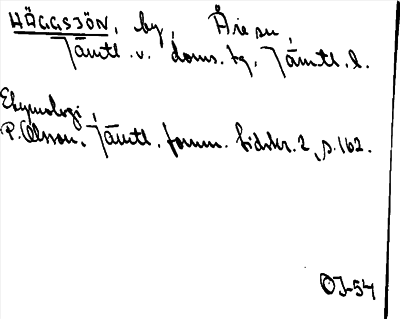 HÄGGSJÖN, by, Åre sn,
Jämtl. v. doms. tg, Jämtl. l.
Etymologi
P. Olsson, Jämtl. fornm. tidskr. 2, s. 162.
OJ-54